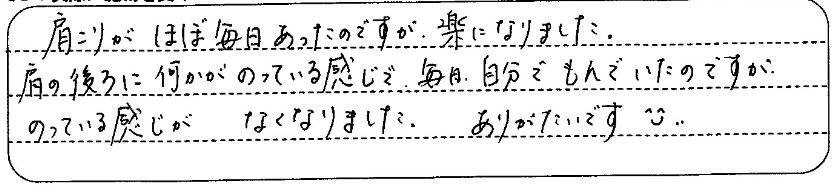 肩こりが ほぼ毎日あったのですが、楽になりました。
肩の後ろに 何かが のっている感じで、毎日、自分で もんでいたのですが、
のっている感じが なくなりました。 ありがたいです